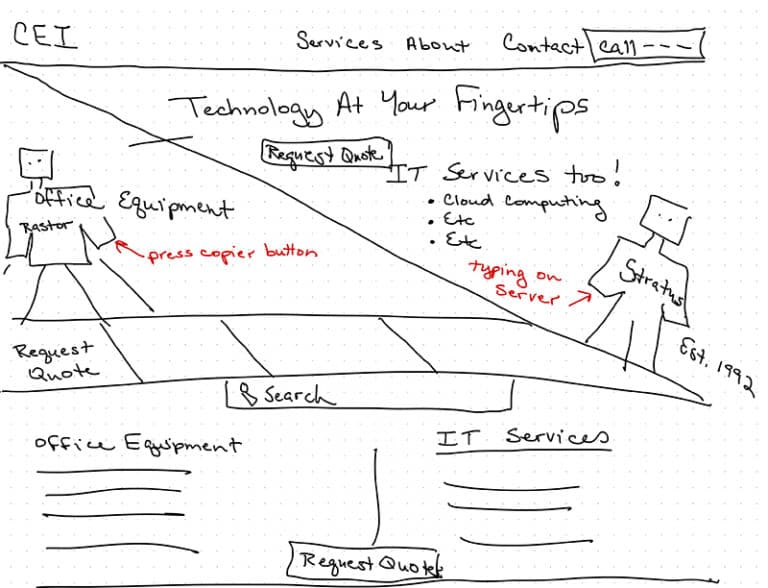 CEI
Services About Contact Call ---
Technology At Your Fingertips
Request Quote
IT Services too!
• Cloud Computing
• Etc
• Etc
Office Equipment
Rastor
press copier button
typing on
server
Stratus
Est. 1992
Request
Quote
Search
Office Equipment
IT Services
Request Quote